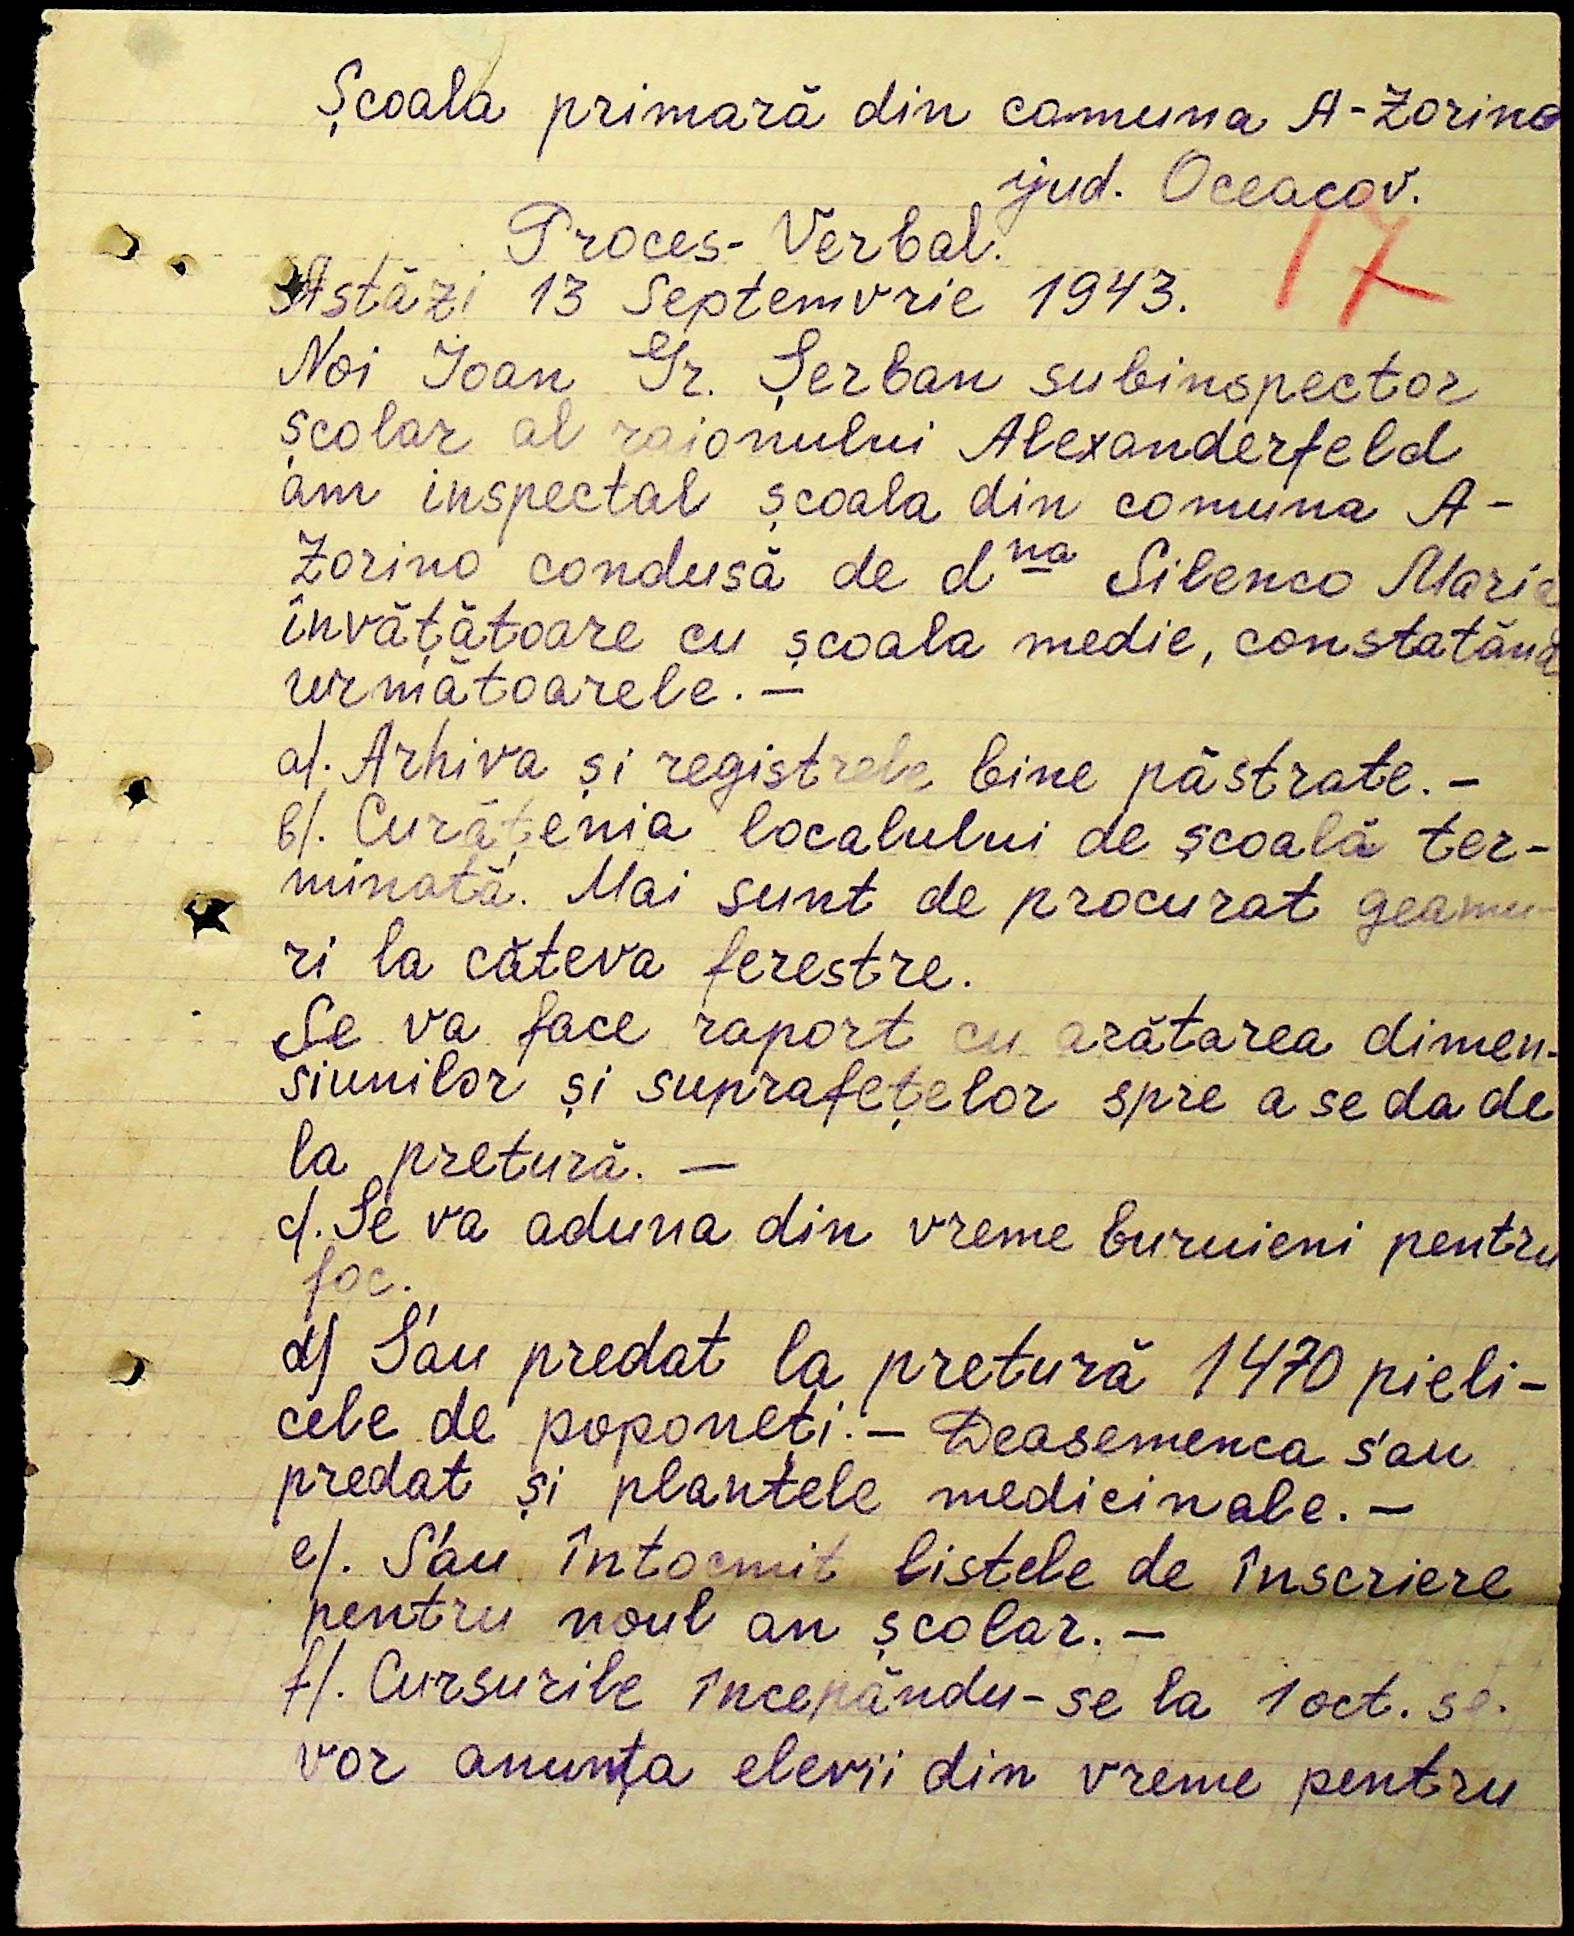 Școala primară din comuna A-Zorino
jud. Oceacov.
17
Proces-Verbal.
Astăzi 13 Septemvrie 1943.
Noi Ioan Gr. Șerban subinspector
școlar al raionului Alexanderfeld
am inspectal școala din comuna A-
Zorino condusă de dna Silenco Maria
învățătoare cu școala medie, constatănd
următoarele. —
a/. Arhiva și registrele bine păstrate. —
b/. Curățenia localului de școală ter-
minată. Mai sunt de procurat geamu-
ri la căteva ferestre.
Se va face raport cu arătarea dimen-
siunilor și suprafețelor spre a se da de
la pretură. —
c/. Se va aduna din vreme buruieni pentru
foc.
d/ S'au predat la pretură 1470 pieli-
cele de poponeți. — Deasemenea s'au
predat și plantele medicinale. —
e/. S'au întocmit listele de înscriere
pentru noul an școlar. —
f/. Cursurile începăndu-se la 1 oct. se
vor anunța elevii din vreme pentru